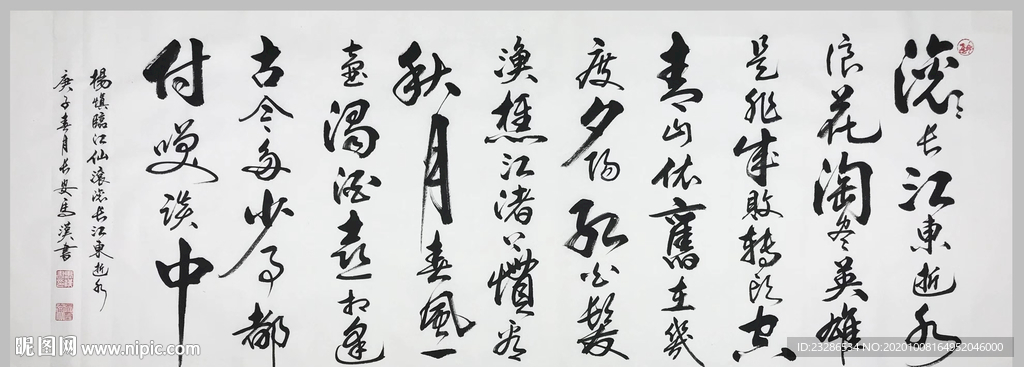 滚滚长江東逝水
浪花淘尽英雄
是非成敗转头空
青山依舊在幾
度夕陽红白髮
渔樵江渚上慣看
秋月春風一
壺濁酒喜相逢
古今多少事都
付嘆谈中
楊慎臨江仙滚滚长江東逝水
庚子春月长安馬漢書
昵图网 www.nipic.com
ID:23286534 NO:20201008164952046000